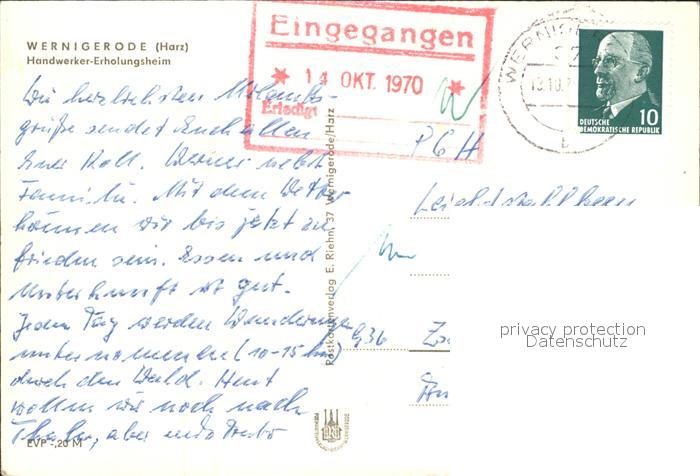 WERNIGERODE (Harz)
Handwerker-Erholungsheim
Eingegangen
14. OKT. 1970
Erledigt
WERNIG
DEUTSCHE
DEMOKRATISCHE REPUBLIK
10
Die herzlichsten Urlaubs-
grüße sendet Euch allen
Euer Koll. Werner nebst
Familie. Mit dem Wetter
können wir bis jetzt zu
frieden sein. Essen und
Unterkunft ist gut.
Jeden Tag werden Wanderungen
unternommen (10-15 km)
durch den Wald. Heut
wollen wir noch nach
Thale, aber
EVP -,20 M
Postkartenverlag E. Riehn, 37 Wernigerode/Harz
PGH
936
privacy protection
Datenschutz